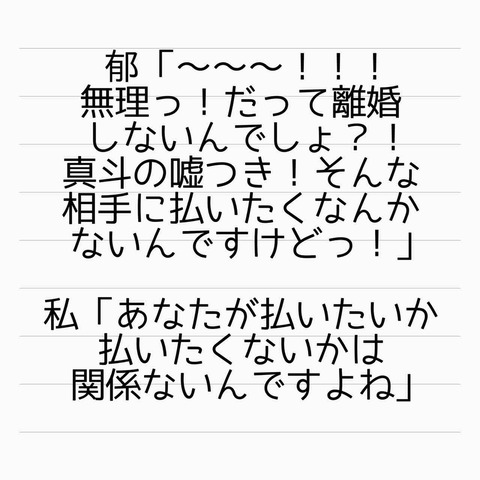 郁「～～～！！！
無理っ！だって離婚
しないんでしょ？！
真斗の嘘つき！そんな
相手に払いたくなんか
ないんですけどっ！」
私「あなたが払いたいか
払いたくないかは
関係ないんですよね」